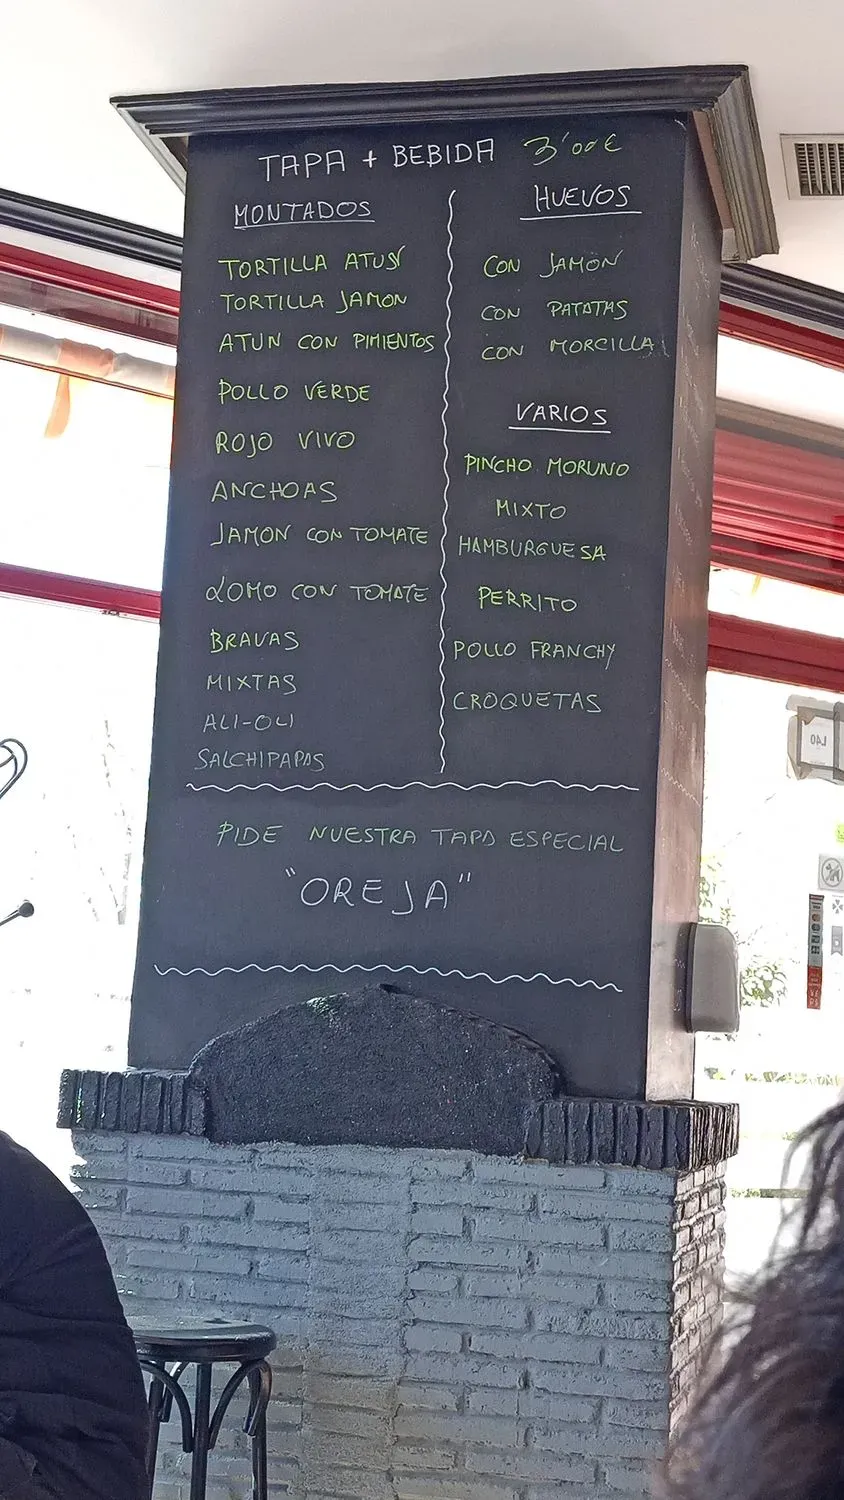 TAPA + BEBIDA 3'00€
MONTADOS
TORTILLA ATUN
TORTILLA JAMON
ATUN CON PIMIENTOS
POLLO VERDE
ROJO VIVO
ANCHOAS
JAMON CON TOMATE
LOMO CON TOMATE
BRAVAS
MIXTAS
ALI-OLI
SALCHIPAPAS
HUEVOS
CON JAMON
CON PATATAS
CON MORCILLA
VARIOS
PINCHO MORUNO
MIXTO
HAMBURGUESA
PERRITO
POLLO FRANCHY
CROQUETAS
PIDE NUESTRA TAPA ESPECIAL
"OREJA"